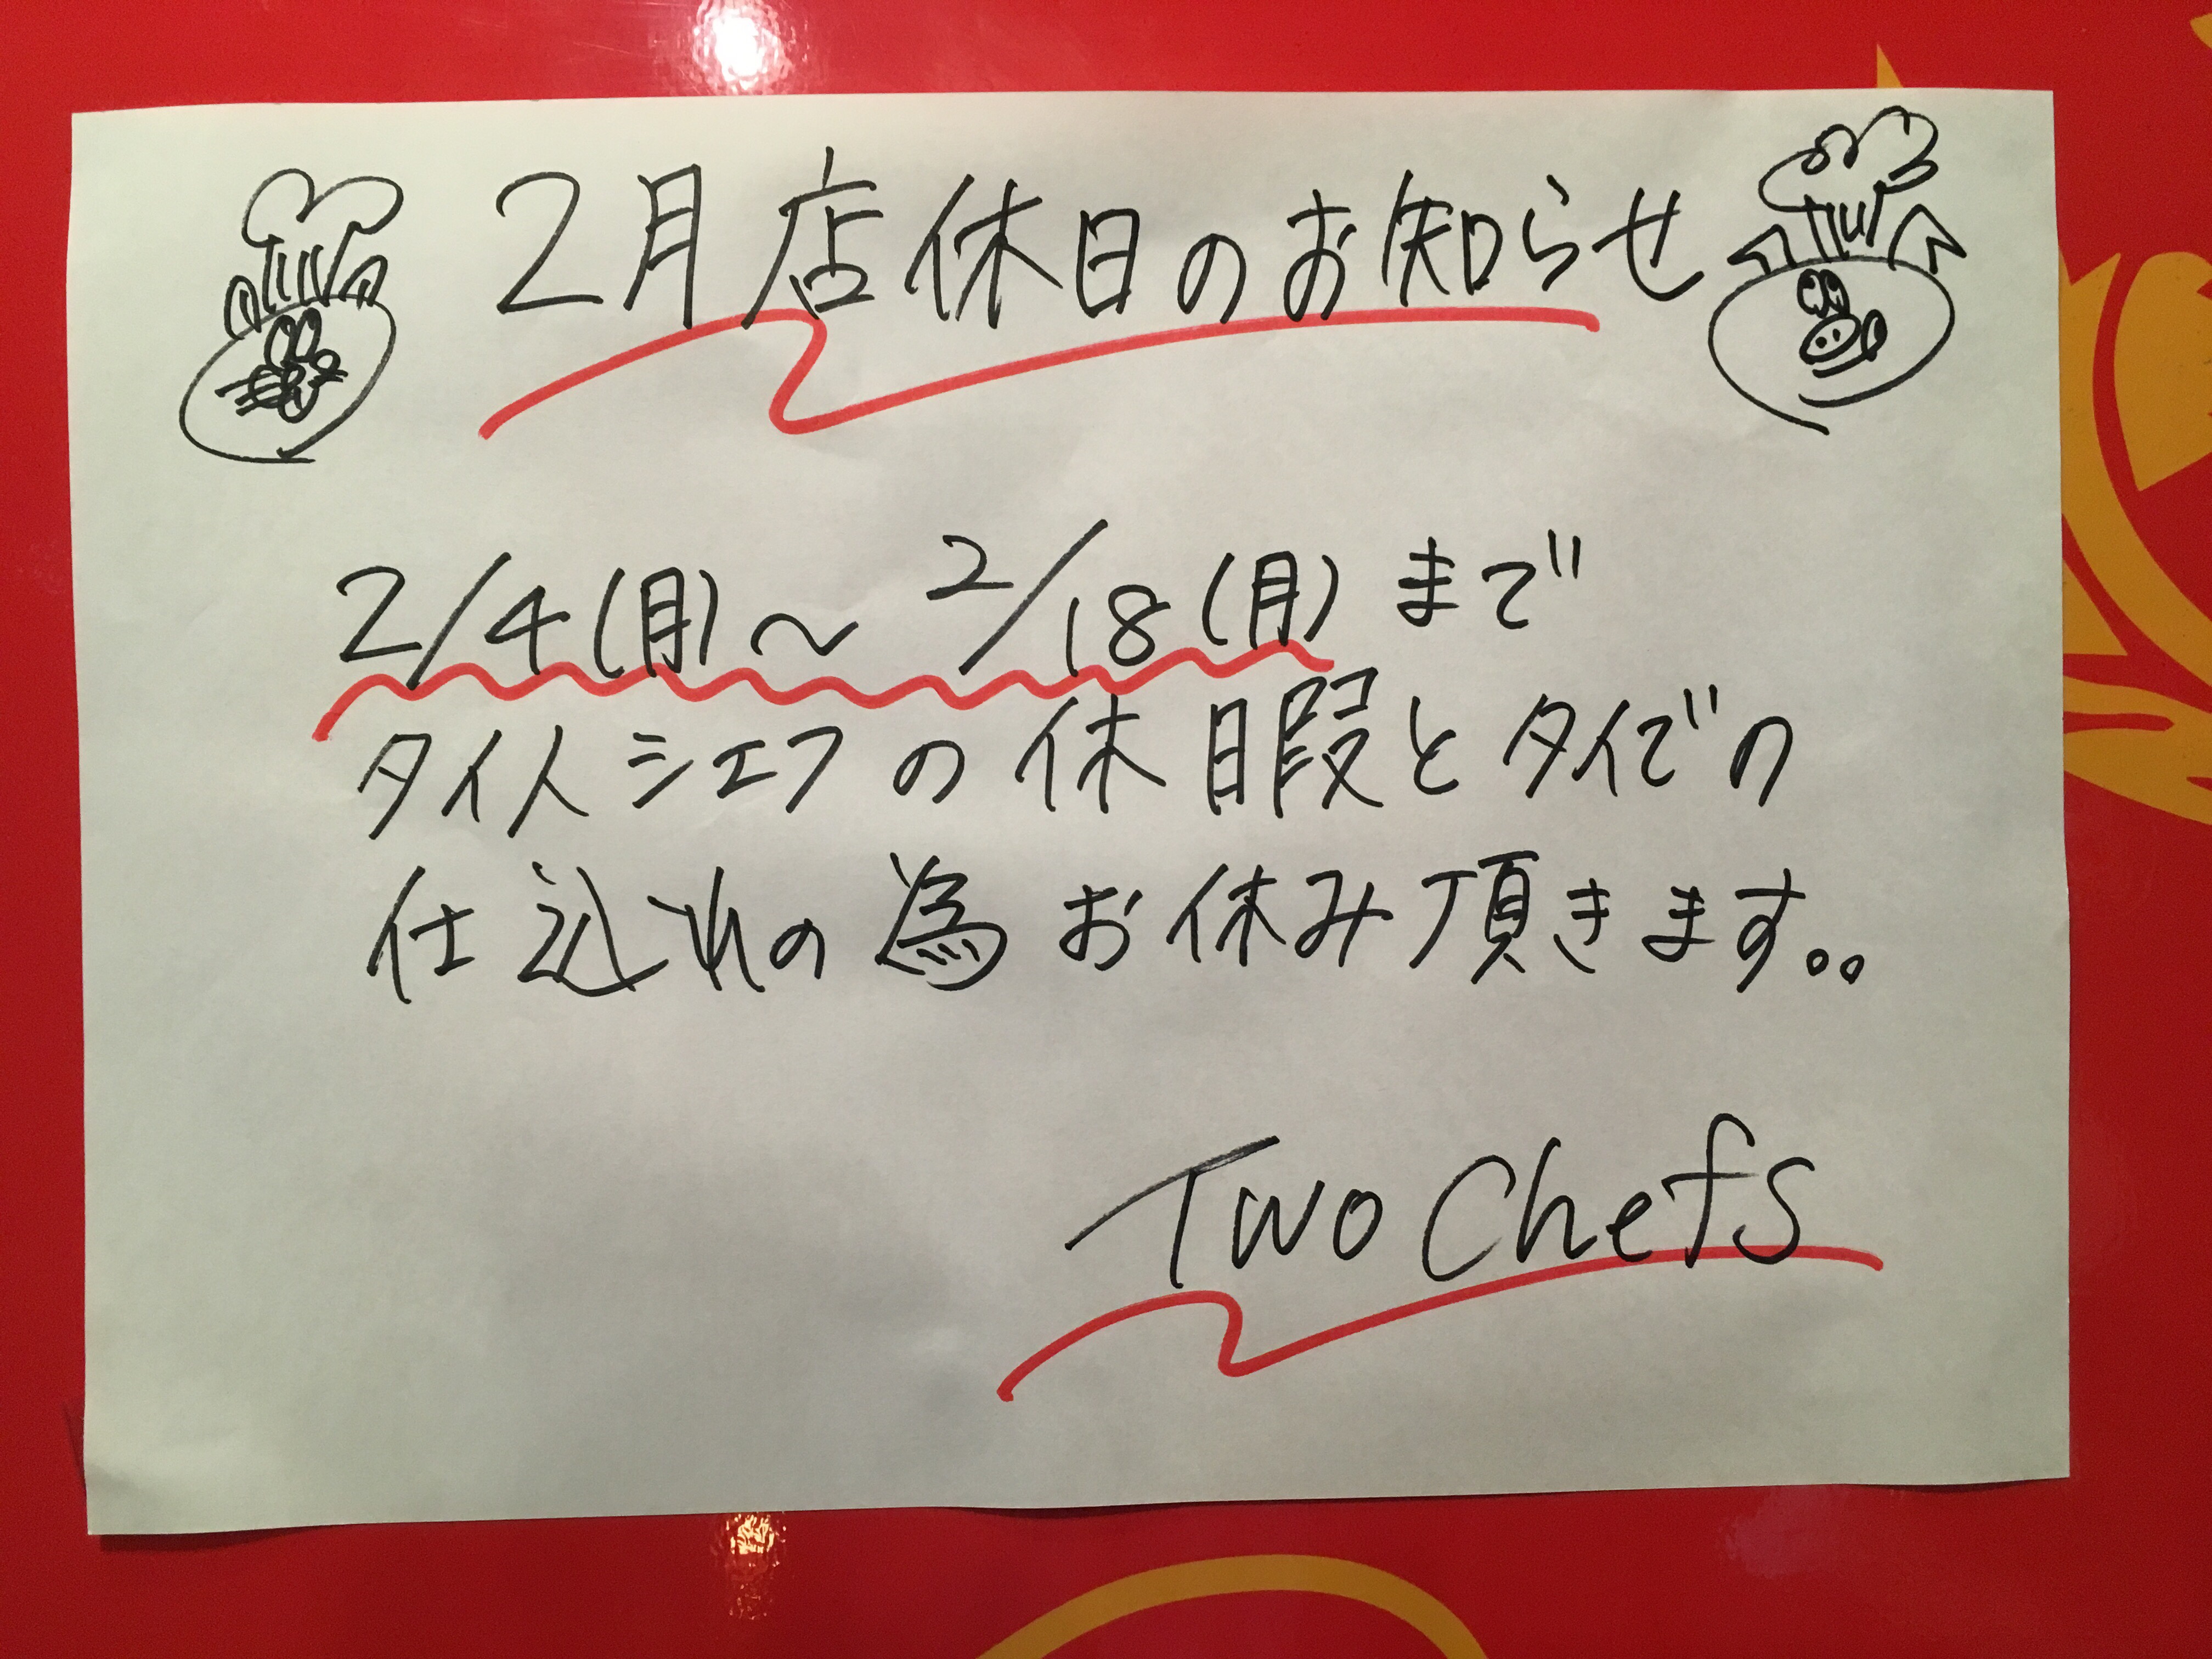 2月店休日のお知らせ
2/4(月)〜2/18(月)まで
タイ人シェフの休暇とタイでの
仕込れの為お休み頂きます。。
Two Chefs